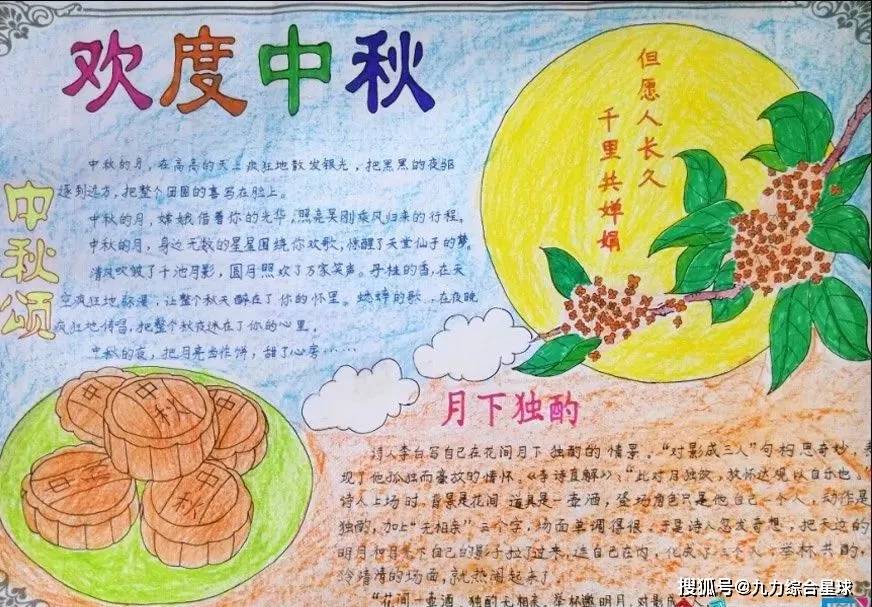 欢度中秋
但愿人长久
千里共婵娟
中秋颂
中秋的月，在高高的天上疯狂地散发银光，把黑黑的夜驱
逐到远方，把整个团圆的喜写在脸上。
中秋的月，嫦娥借着你的光华，照亮吴刚乘风归来的行程。
中秋的月，身边无数的星星围绕你欢歌，惊醒了天堂仙子的梦。
清风吹皱了千池月影，圆月照欢了万家笑声。丹桂的香，在天
空疯狂地弥漫，让整个秋天醉在了你的怀里。蟋蟀的歌，在夜晚
疯狂地传唱，把整个秋夜迷在了你的心里。
中秋的夜，把月亮当作饼，甜了心房……
中秋
中秋
中秋
月下独酌
诗人李白写自己在花间月下独酌的情景。“对影成三人”句构思奇妙，表
现了他孤独而豪放的情怀。《李诗直解》：“此对月独饮，放怀达观以自乐也。
诗人上场时，背景是花间，道具是一壶酒，登场角色只是他自己一个人，动作是
独酌，加上“无相亲”三个字，场面单调得很。于是诗人忽发奇想，把天边的
明月和月光下自己的影子拉了过来，连自己在内，化成了三个人，举杯共酌，
冷清清的场面，就热闹起来了
“花间一壶酒，独酌无相亲。举杯邀明月，对影成
搜狐号@九力综合星球